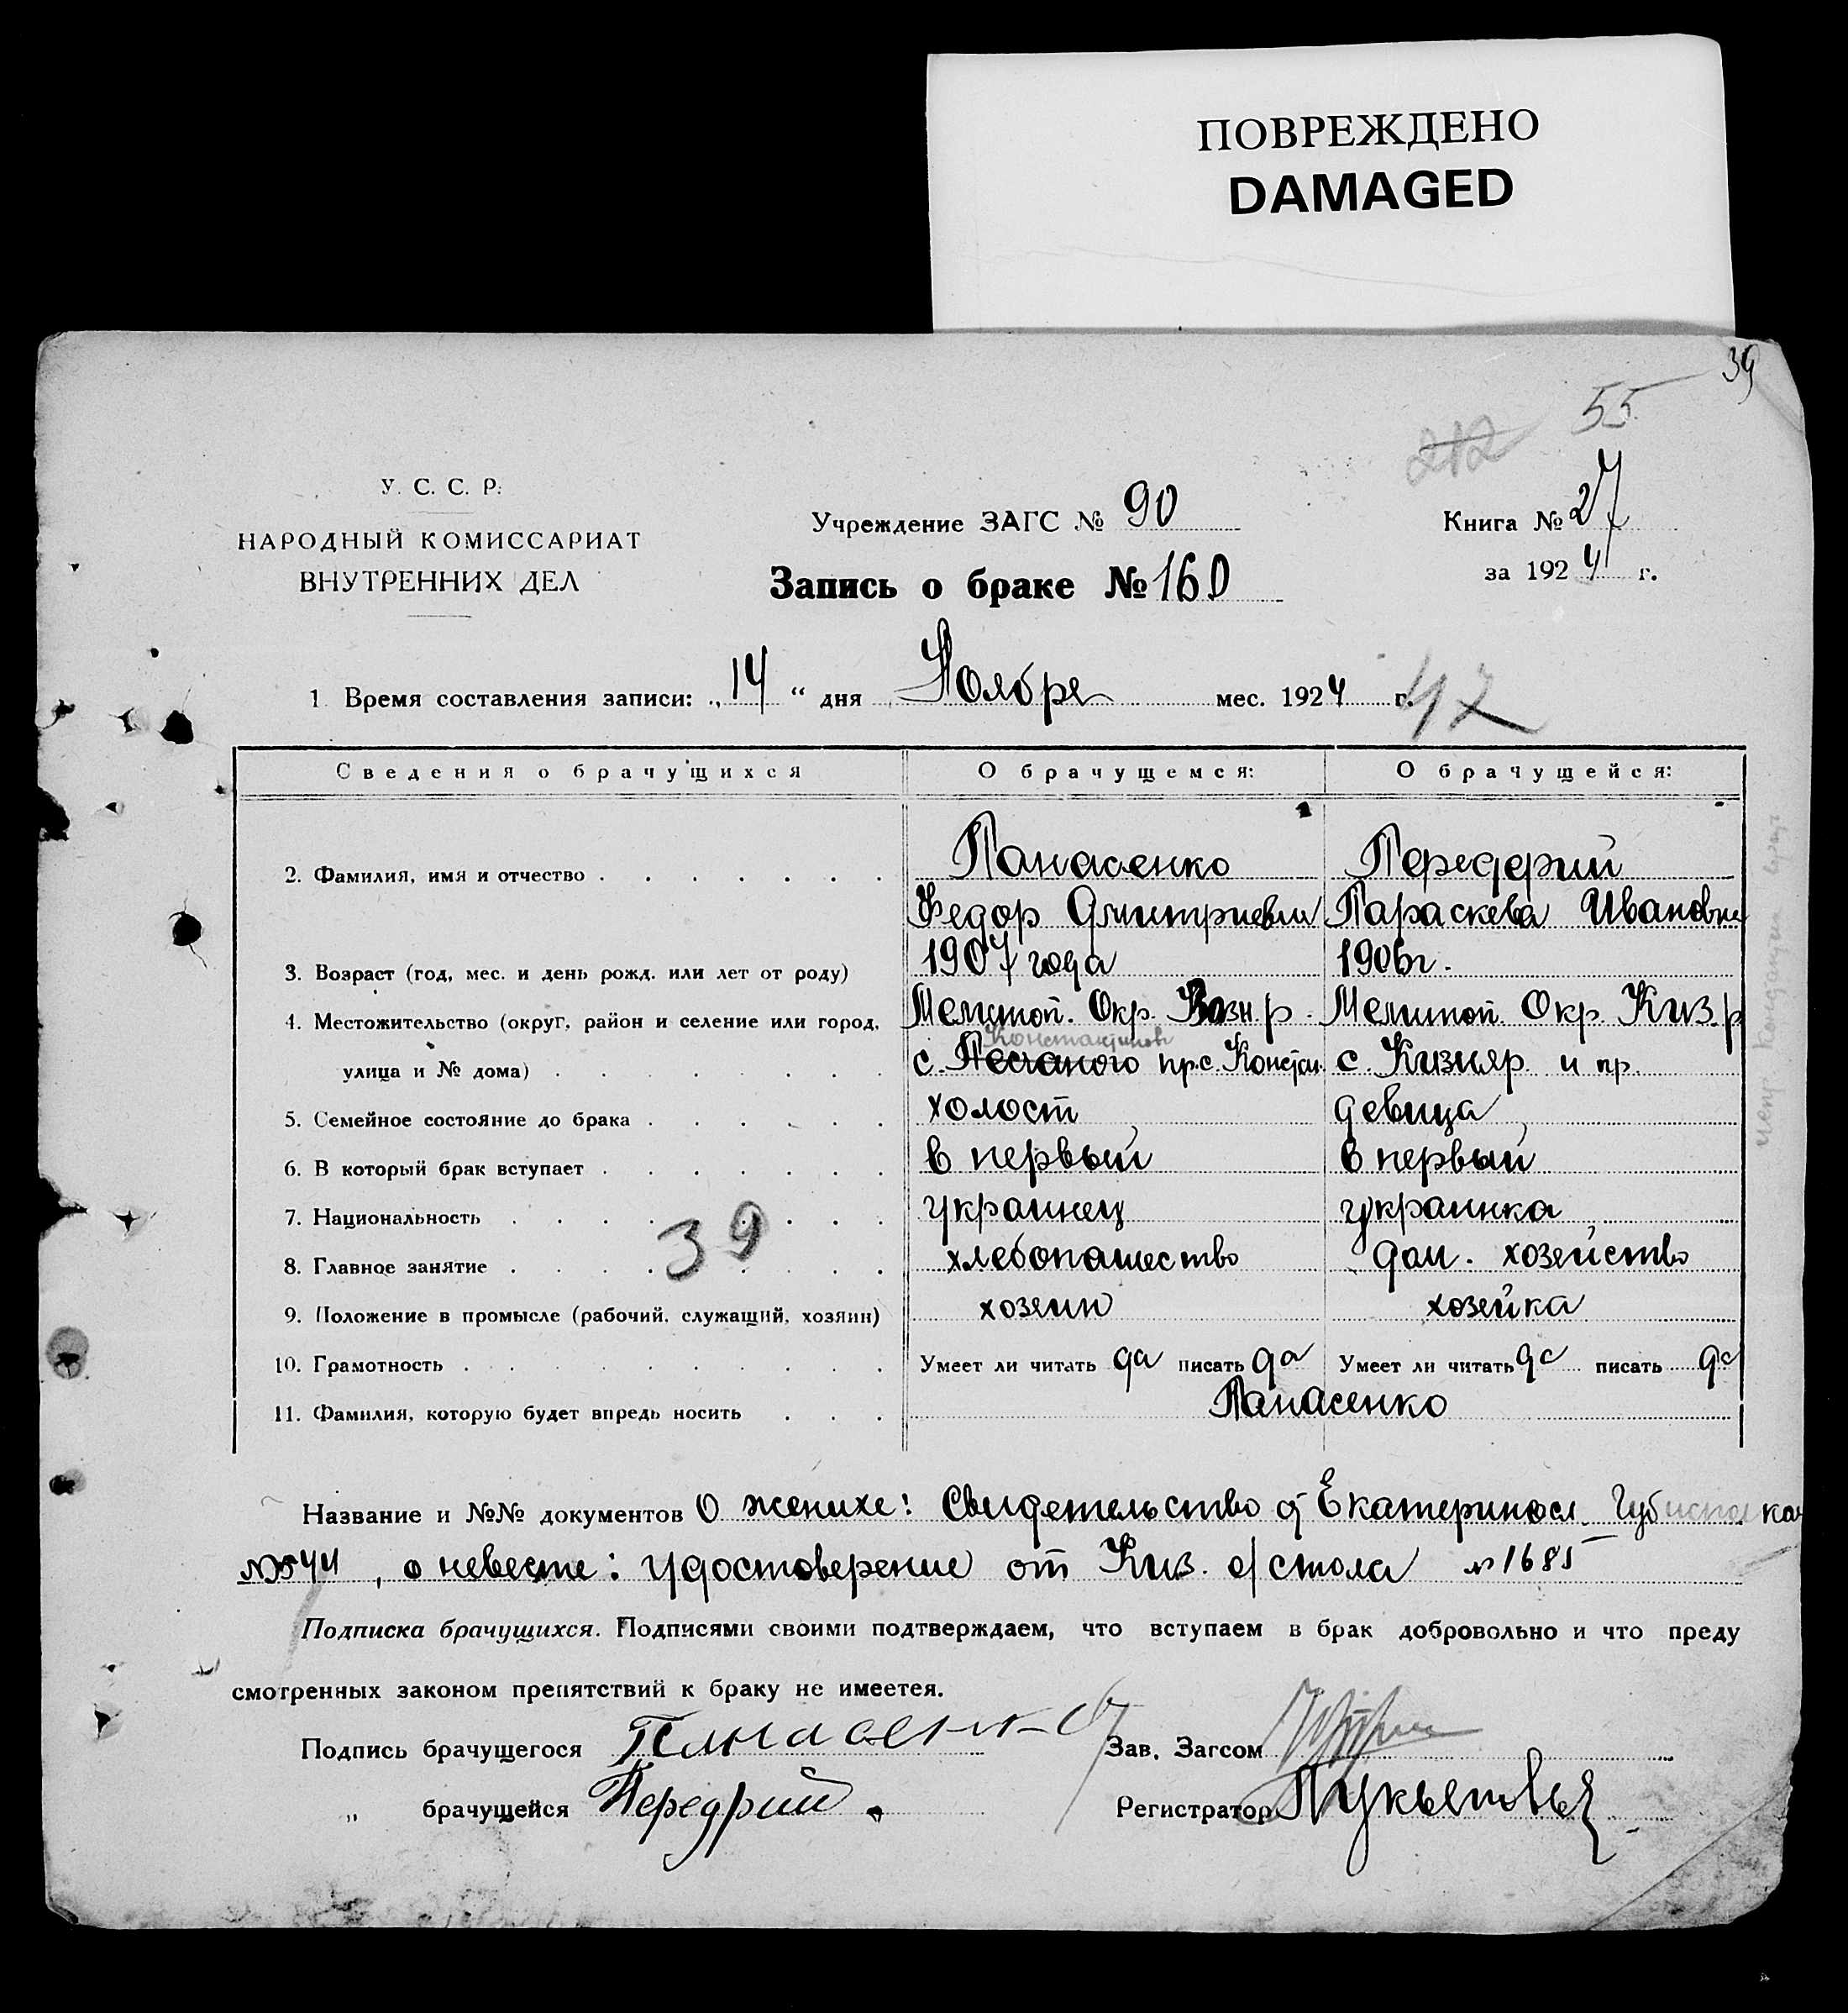 ПОВРЕЖДЕНО
DAMAGED
39
55
212
У. С. С. Р.
НАРОДНЫЙ КОМИССАРИАТ
ВНУТРЕННИХ ДЕЛ
Учреждение ЗАГС № 90
Книга № 27
за 1924 г.
Запись о браке № 160
1. Время составления записи: „ 14 “ дня Ноября мес. 1924 г.
42
Сведения о брачущихся О брачущемся: О брачущейся:
2. Фамилия, имя и отчество Панасенко Передерий
Федор Дмитриевич Параскева Ивановна
3. Возраст (год, мес. и день рожд. или лет от роду) 1907 года 1906 г.
4. Местожительство (округ, район и селение или город, Мелитоп. Окр. Возн. р. Мелитоп. Окр. Киз. р
Константинов
улица и № дома) с. Песчаного пр. с. Констан. с. Кизияр и пр.
5. Семейное состояние до брака холост девица
6. В который брак вступает в первый в первый
7. Национальность украинец украинка
39
8. Главное занятие хлебопашество дом. хозейство
9. Положение в промысле (рабочий, служащий, хозяин) хозеин хозейка
10. Грамотность Умеет ли читать да писать да Умеет ли читать да писать да
11. Фамилия, которую будет впредь носить Панасенко
Название и №№ документов О женихе: Свидетельство от Екатериносл. Губ
№ 544, о невесте: удостоверение от Киз. с/стола № 1685
Подписка брачущихся. Подписями своими подтверждаем, что вступаем в брак добровольно и что преду
смотренных законом препятствий к браку не имеется.
Подпись брачущегося Панасенко Зав. Загсом
„ брачущейся Передрий. Регистратор